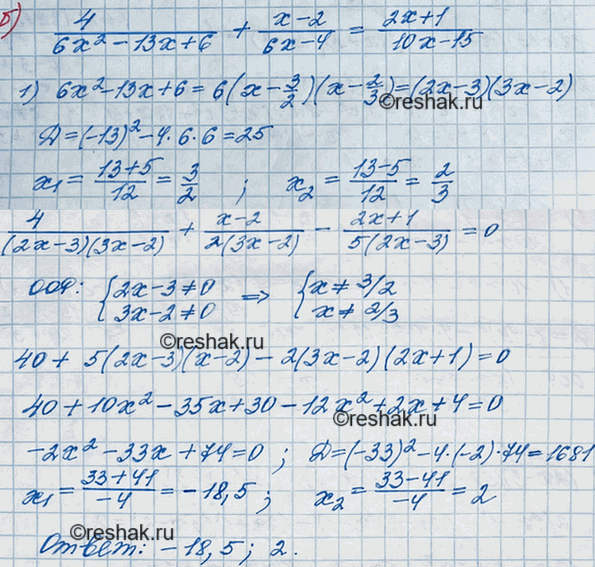 б) 4/(6x² - 13x + 6) + (x - 2)/(6x - 4) = (2x + 1)/(10x - 15)
1) 6x² - 13x + 6 = 6(x - 3/2)(x - 2/3) = (2x - 3)(3x - 2)
©reshak.ru
D = (-13)² - 4 · 6 · 6 = 25
x₁ = (13 + 5)/12 = 3/2 ; x₂ = (13 - 5)/12 = 2/3
4/((2x - 3)(3x - 2)) + (x - 2)/(2(3x - 2)) - (2x + 1)/(5(2x - 3)) = 0
ООФ: { 2x - 3 ≠ 0 ⇒ { x ≠ 3/2
3x - 2 ≠ 0 x ≠ 2/3
©reshak.ru
40 + 5(2x - 3)(x - 2) - 2(3x - 2)(2x + 1) = 0
40 + 10x² - 35x + 30 - 12x² + 2x + 4 = 0
-2x² - 33x + 74 = 0 ; D = (-33)² - 4 · (-2) · 74 = 1681
x₁ = (33 + 41)/-4 = -18,5 ; x₂ = (33 - 41)/-4 = 2
©reshak.ru
Ответ: -18,5 ; 2.